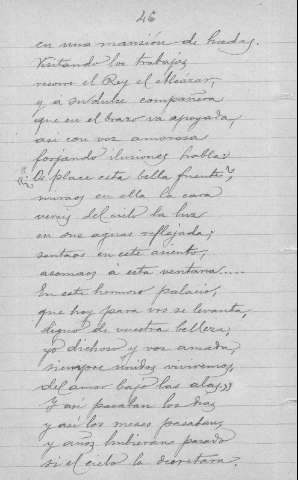 46
en una mansión de hadas.
Visitando los trabajos
recorre el Rey el Alcázar,
y a su dulce compañera
que en el brazo va apoyada,
así con voz amorosa
forjando ilusiones habla:
Os place esta bella fuente?,
miraos en ella la cara
vereis del cielo la luz
en sus aguas reflejada;
sentaos en este asiento,
asomaos á esta ventana....
En este hermoso palacio,
que hoy para vos se levanta,
digno de vuestra belleza,
yo dichoso y vos amada,
siempre unidos viviremos,
del amor bajo las alas,»
Y así pasaban los dias
y así los meses pasaban,
y años hubieran pasado
si el cielo lo decretara.